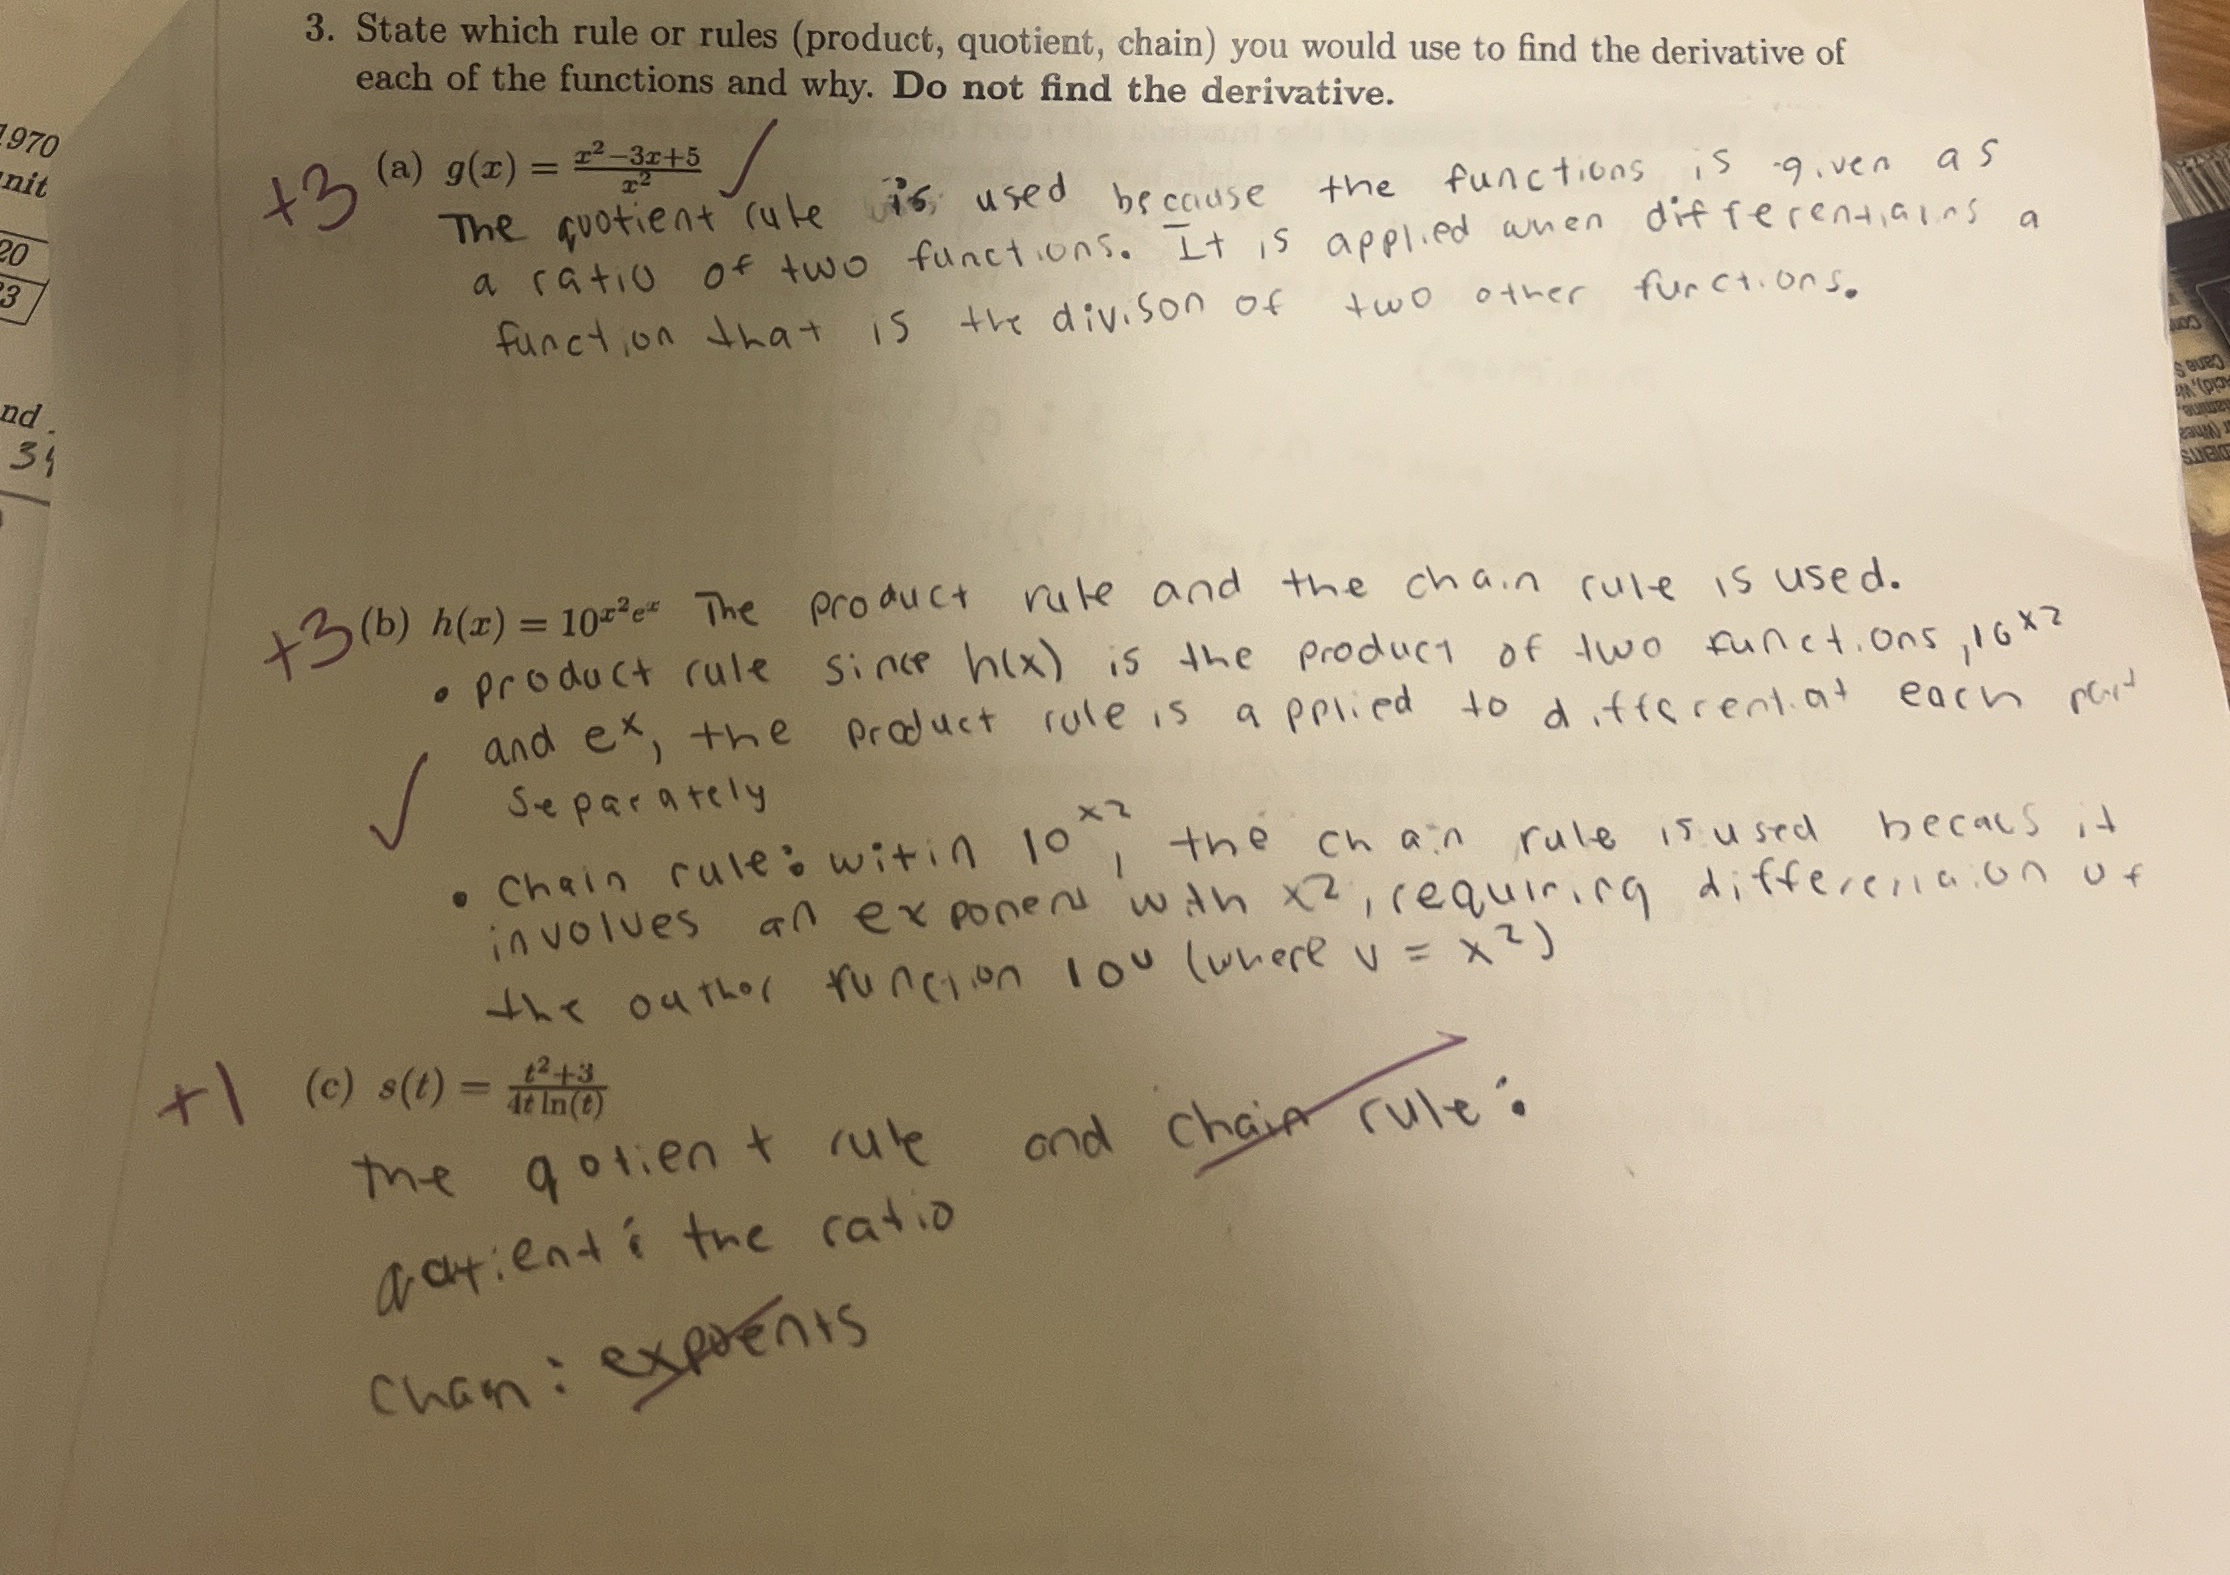 3. State which rule or rules (product, quotient, chain) you would use to find the derivative of
each of the functions and why. Do not find the derivative.
1970
nit
20
23
nd
34
+3 (a) g(x) = x²−3x+5 / x² ✓
The quotient rule is used because the functions is given as
a ratio of two functions. It is applied when differentiains a
function that is the divison of two other functions.
+3 (b) h(x) = 10^{x²e^x} The product rule and the chain rule is used.
• product rule since h(x) is the product of two functions, 10^{x2}
and e^x, the product rule is applied to differentiat each part
✓ separately
• Chain rule: witin 10^{x2}, the chain rule is used becaus it
involves an exponent with x2, requiring of
the outher function 10^u (where u = x²)
+1 (c) s(t) = t²+3 / 4t ln(t)
the qotient rule and chain rule:
the ratio
chain: expoents